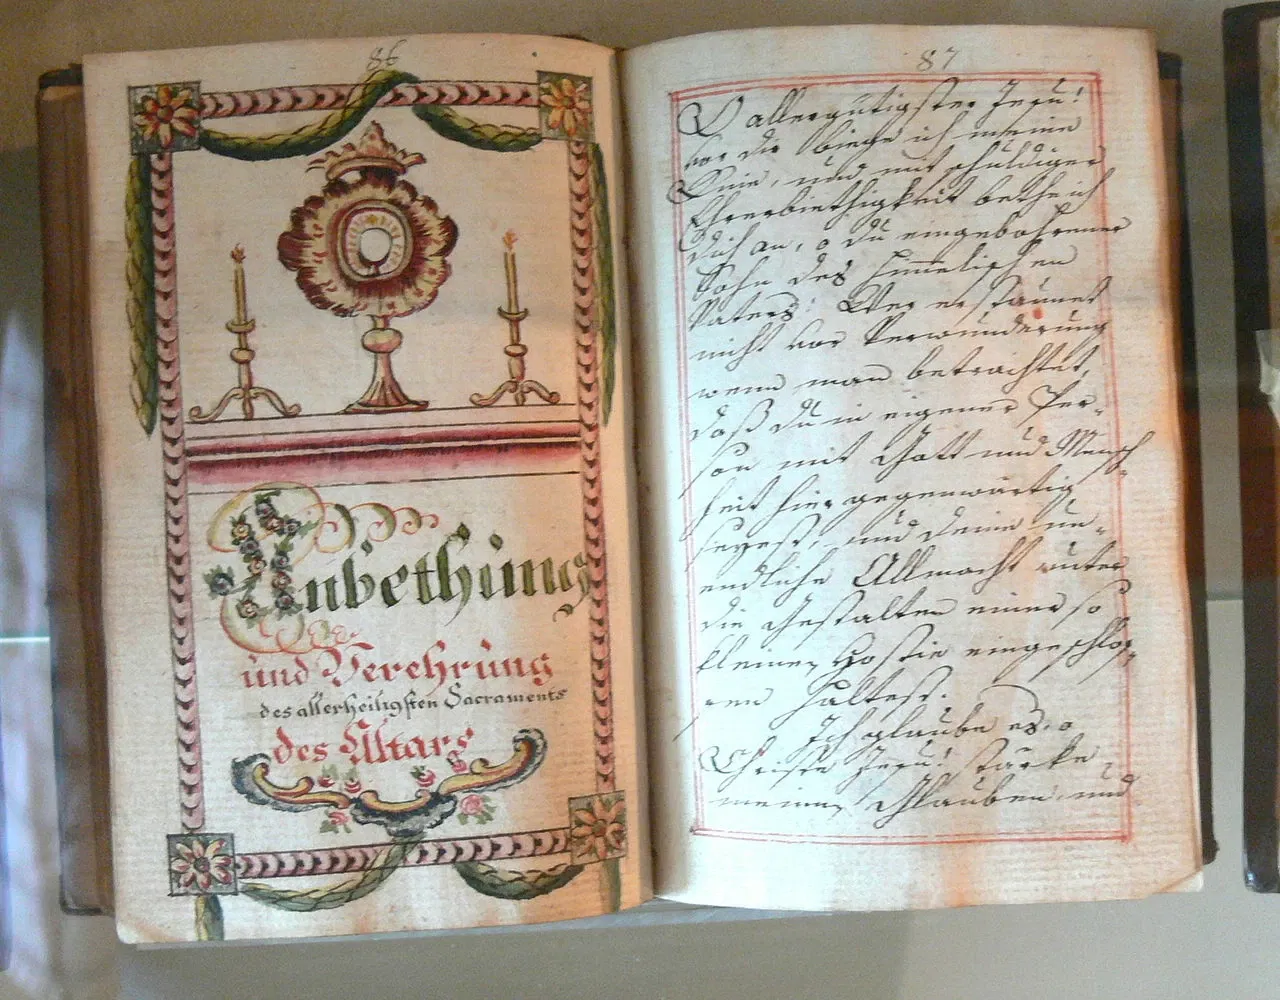 86
Anbethung
und Verehrung
des allerheiligsten Sacraments
des Altars
87
O allergütigster Jesu!
vor dir biege ich meine
Knie, und mit schuldiger
Ehrerbiethigkeit bethe ich
dich an, o du eingebohrener
Sohn des himmelischen
Vaters! Wer erstaunet
nicht vor Verwunderung
wenn man betrachtet,
daß du in eigener Per-
son mit Gott und Mensch-
heit hier gegenwärtig
seyest, und deine un-
endliche Allmacht unter
die Gestalten einer so
kleinen Hostie eingeschlos-
sen haltest.
Ich glaube es, o
Christe Jesu! stärke
meinen Glauben, und